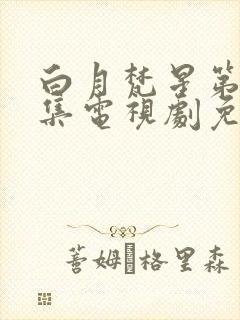 白月梵星第
集電視劇免
蒼姆·格里森